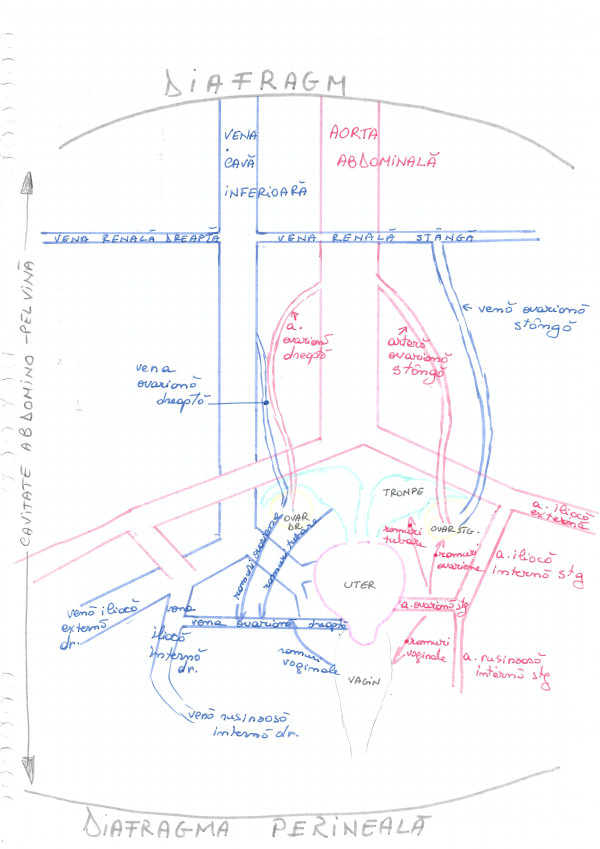 DIAFRAGM
VENA
CAVĂ
INFERIOARĂ
AORTA
ABDOMINALĂ
VENA RENALĂ DREAPTĂ
VENA RENALĂ STÂNGĂ
CAVITATE ABDOMINO-PELVINĂ
venă ovariană
stângă
a.
ovariană
dreaptă
arteră
ovariană
stângă
vena
ovariană
dreaptă
TROMPE
OVAR
DR.
OVAR STG.
ramuri
tubare
ramuri ovariene
ramuri tubare
ramuri
ovariene
a. iliacă
externă
a. iliacă
internă stg
UTER
venă iliacă
externă
dr.
vena
iliacă
internă
dr.
vena ovariană dreaptă
a. ovariană stg
ramuri
vaginale
ramuri
vaginale
VAGIN
a. rusinoasă
internă stg
venă rusinoasă
internă dr.
DIAFRAGMA PERINEALĂ